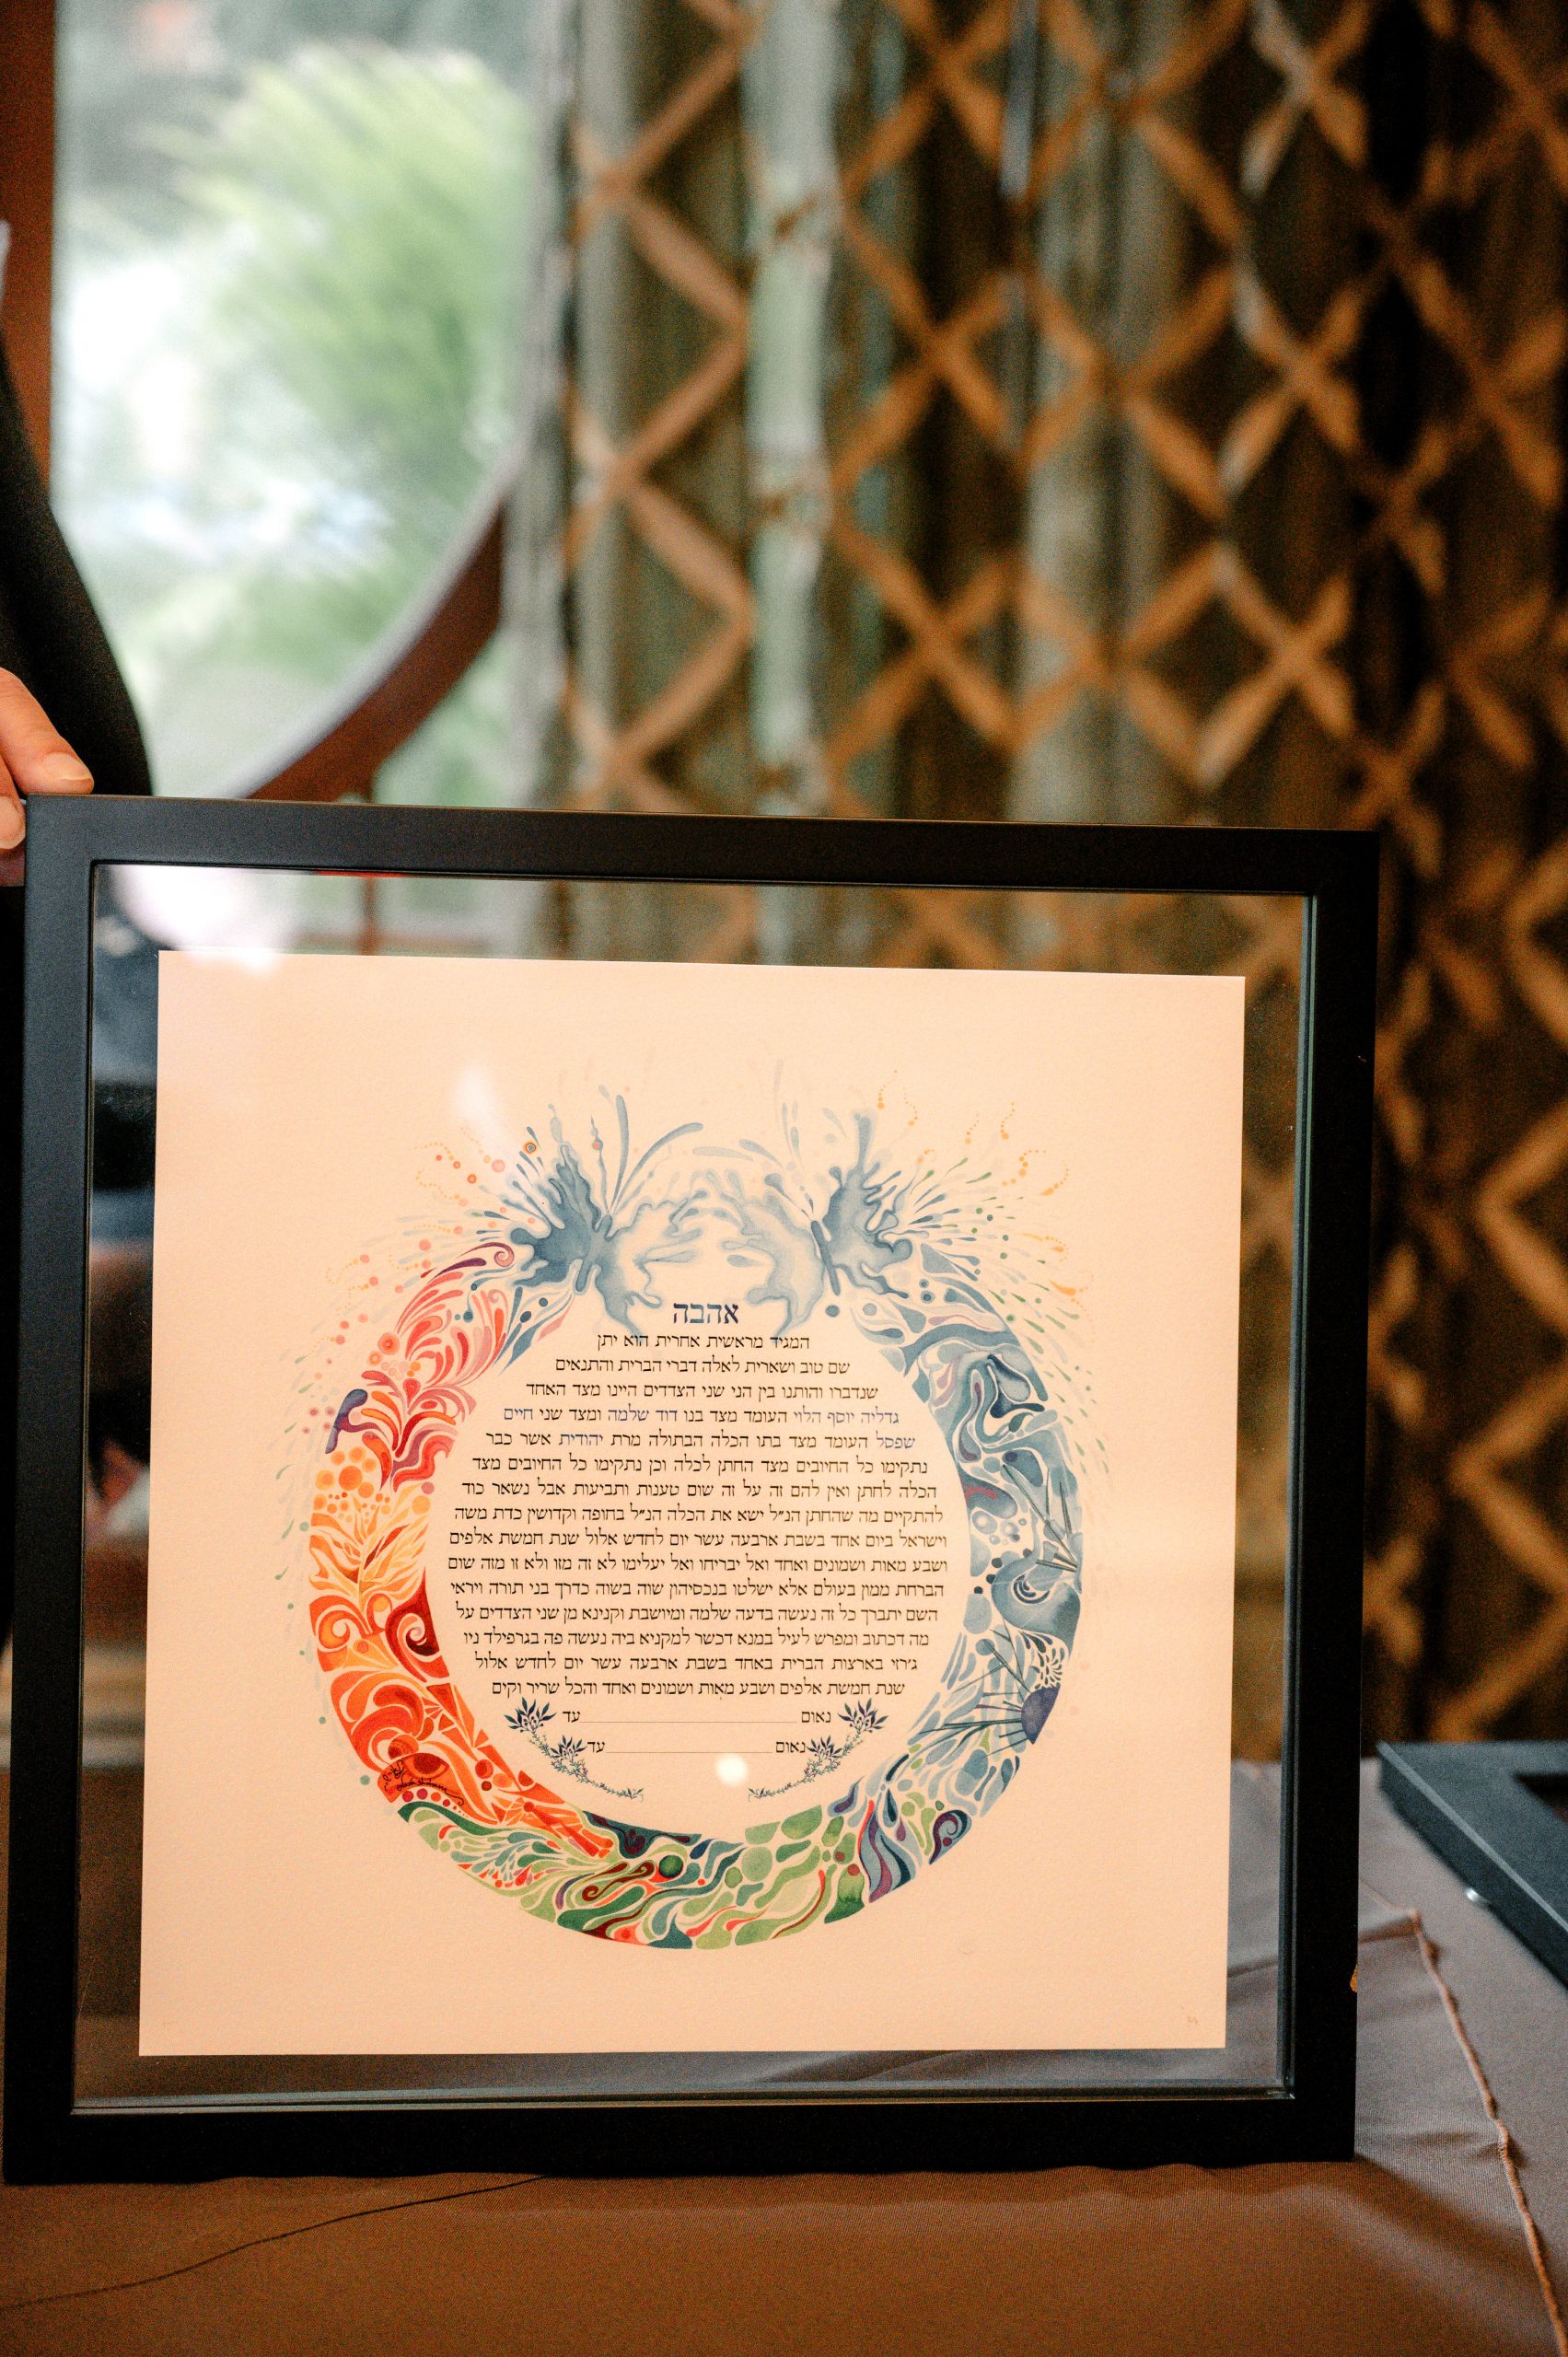 אהבה
המגיד מראשית אחרית הוא יתן
שם טוב ושארית לאלה דברי הברית והתנאים
שנדברו והותנו בין הני שני הצדדים היינו מצד האחד
גדליה יוסף הלוי העומד מצד בנו דוד שלמה ומצד שני חיים
שפסל העומד מצד בתו הכלה הבתולה מרת יהודית אשר כבר
נתקימו כל החיובים מצד החתן לכלה וכן נתקימו כל החיובים מצד
הכלה לחתן ואין להם זה על זה שום טענות ותביעות אבל נשאר כוד
להתקיים מה שהחתן הנ״ל ישא את הכלה הנ״ל בחופה וקדושין כדת משה
וישראל ביום אחד בשבת ארבעה עשר יום לחדש אלול שנת חמשת אלפים
ושבע מאות ושמונים ואחד ואל יבריחו ואל יעלימו לא זה מזו ולא זו מזה שום
הברחת ממון בעולם אלא ישלטו בנכסיהון שוה בשוה כדרך בני תורה ויראי
השם יתברך כל זה נעשה בדעה שלמה ומיושבת וקנינא מן שני הצדדים על
מה דכתוב ומפרש לעיל במנא דכשר למקניא ביה נעשה פה בגרפילד ניו
ג׳רזי בארצות הברית באחד בשבת ארבעה עשר יום לחדש אלול
שנת חמשת אלפים ושבע מאות ושמונים ואחד והכל שריר וקים
נאום עד
נאום עד